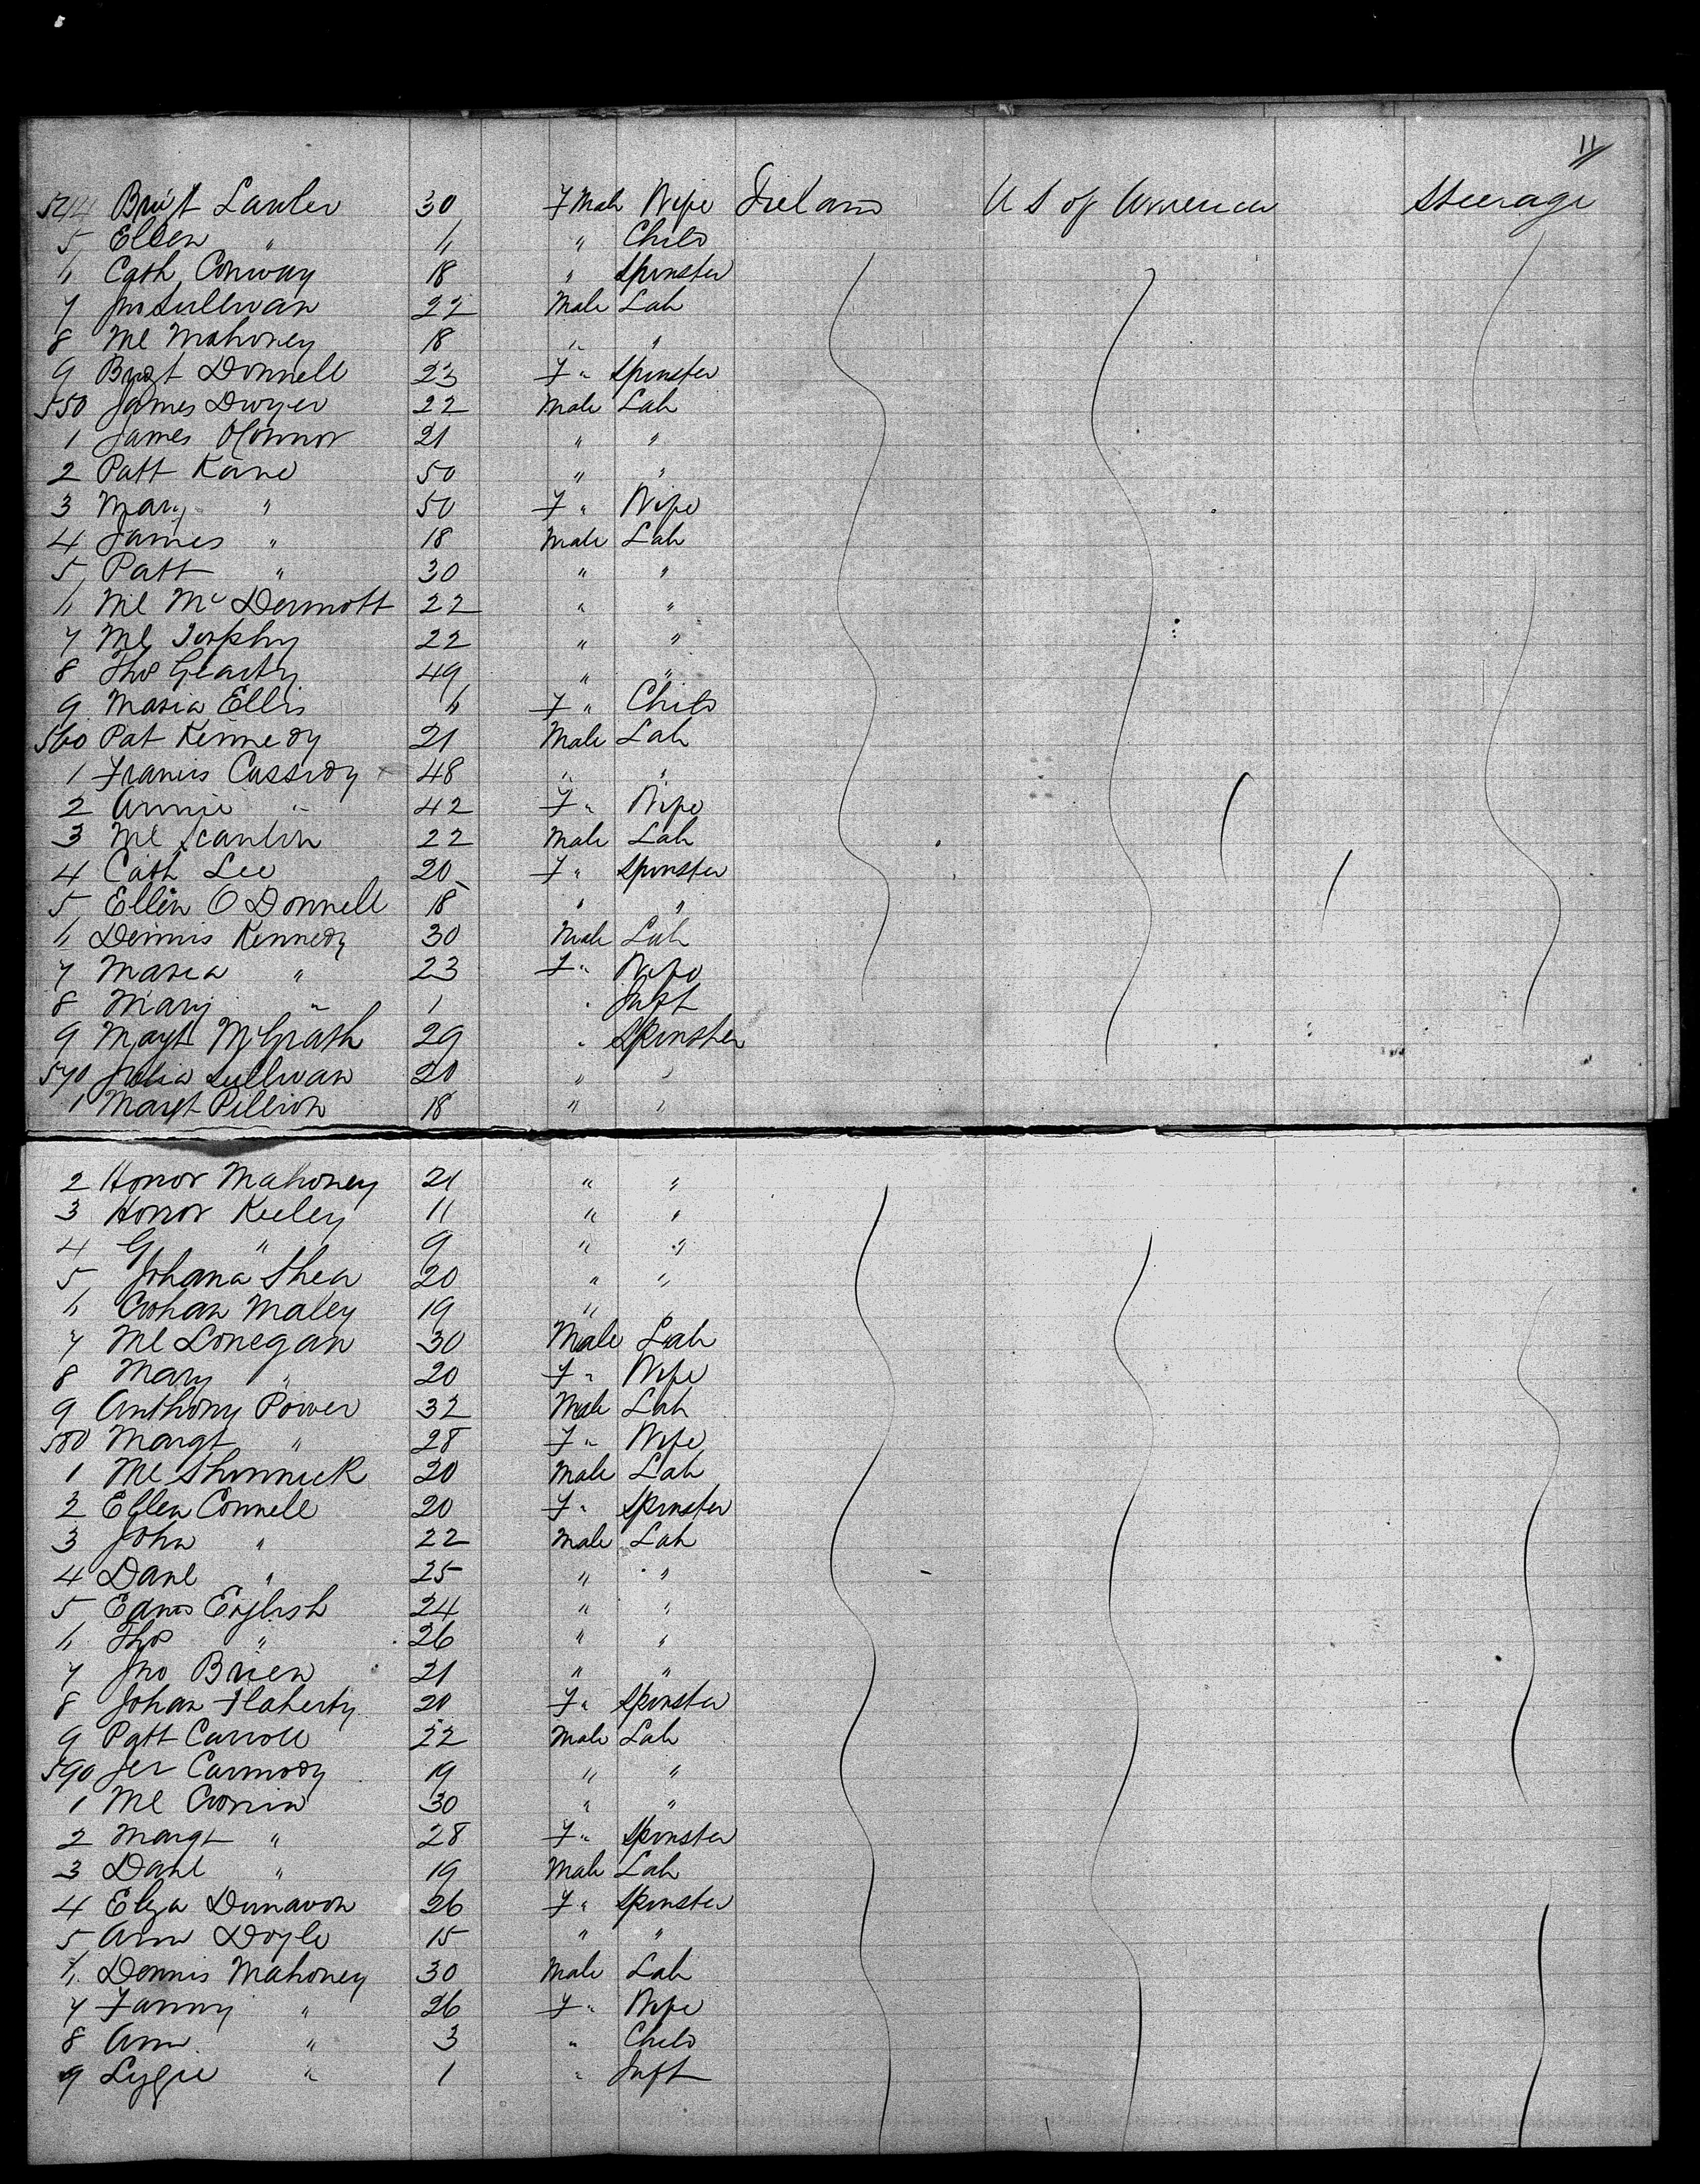 11
544 Brigt Lawler 30 F Male Wife Ireland U S of America Steerage
5 Ellen " 6 " Child
6 Cath Conway 18 " Spinster
7 Jno Sullivan 22 Male Lab
8 Ml Mahoney 18 " "
9 Brigt Donnell 23 F " Spinster
550 James Dwyer 22 Male Lab
1 James OConnor 21 " "
2 Patt Kane 50 " "
3 Mary " 50 F " Wife
4 James " 18 Male Lab
5 Patt " 30 " "
6 Ml McDermott 22 " "
7 Ml Torphy 22 " "
8 Thos Gearty 49 " "
9 Maria Ellis 6 F " Child
560 Pat Kennedy 21 Male Lab
1 Francis Cassidy 48 " "
2 Annie " 42 F " Wife
3 Ml Scanlon 22 Male Lab
4 Cath Lee 20 F " Spinster
5 Ellen O Donnell 18 " "
6 Dennis Kennedy 30 Male Lab
7 Maria " 23 F " Wife
8 Mary " 1 " Inft
9 Margt McGrath 29 " Spinster
570 Julia Sullivan 20 " "
1 Margt Pillion 18 " "
2 Honor Mahoney 21 " "
3 Honor Keeley 11 " "
4 G " 9 " "
5 Johana Shea 20 " "
6 Maley 19 " "
7 Ml Lonegan 30 Male Lab
8 Mary " 20 F " Wife
9 Anthony Power 32 Male Lab
580 Margt " 28 F " Wife
1 Ml Shinnick 20 Male Lab
2 Ellen Connell 20 F " Spinster
3 John " 22 Male Lab
4 Danl " 25 " "
5 Edmd English 24 " "
6 Thos " 26 " "
7 Jno Brien 21 " "
8 Johan Flaherty 20 F " Spinster
9 Patt Carroll 22 Male Lab
590 Jer Carmody 19 " "
1 Ml Cronin 30 " "
2 Margt " 28 F " Spinster
3 Danl " 19 Male Lab
4 Eliza Dunavon 26 F " Spinster
5 Ann Doyle 15 " "
6 Dennis Mahoney 30 Male Lab
7 Fanny " 26 F " Wife
8 Ann " 3 " Child
9 " 1 " Inft